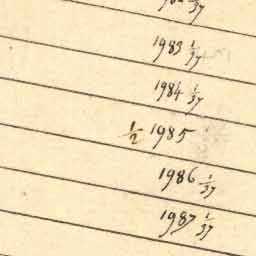 1983 1/37
1984 1/37
1/2 1985
1986 1/37
1987 1/37